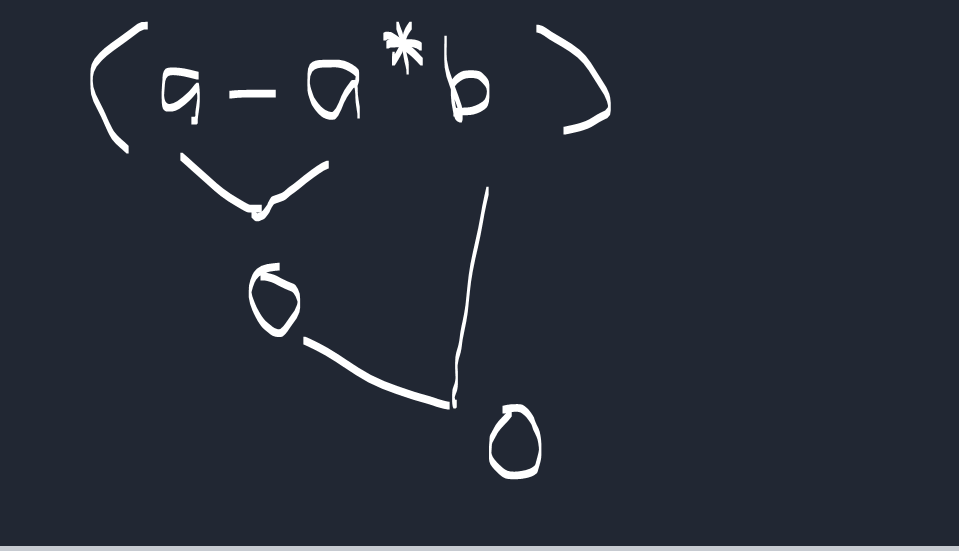 (a - a * b)
0
0